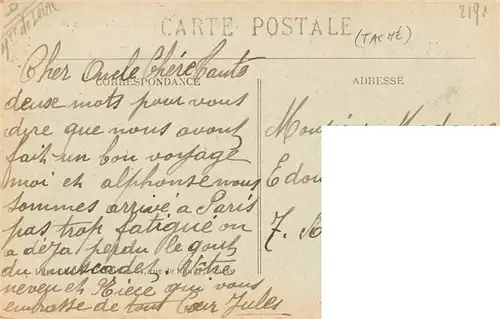 CARTE POSTALE
(TACHÉ)
219
CORRESPONDANCE
ADRESSE
Cher Oncle Chère Tante
deux mots pour vous
dire que nous avons
fait un bon voyage
moi et alphonse nous
sommes arrivé a Paris
pas trop fatigué on
a déja perdu le gout
du muscadet, Votre
neveu et Nièce qui vous
embrasse de tout Cœur Jules
Edou